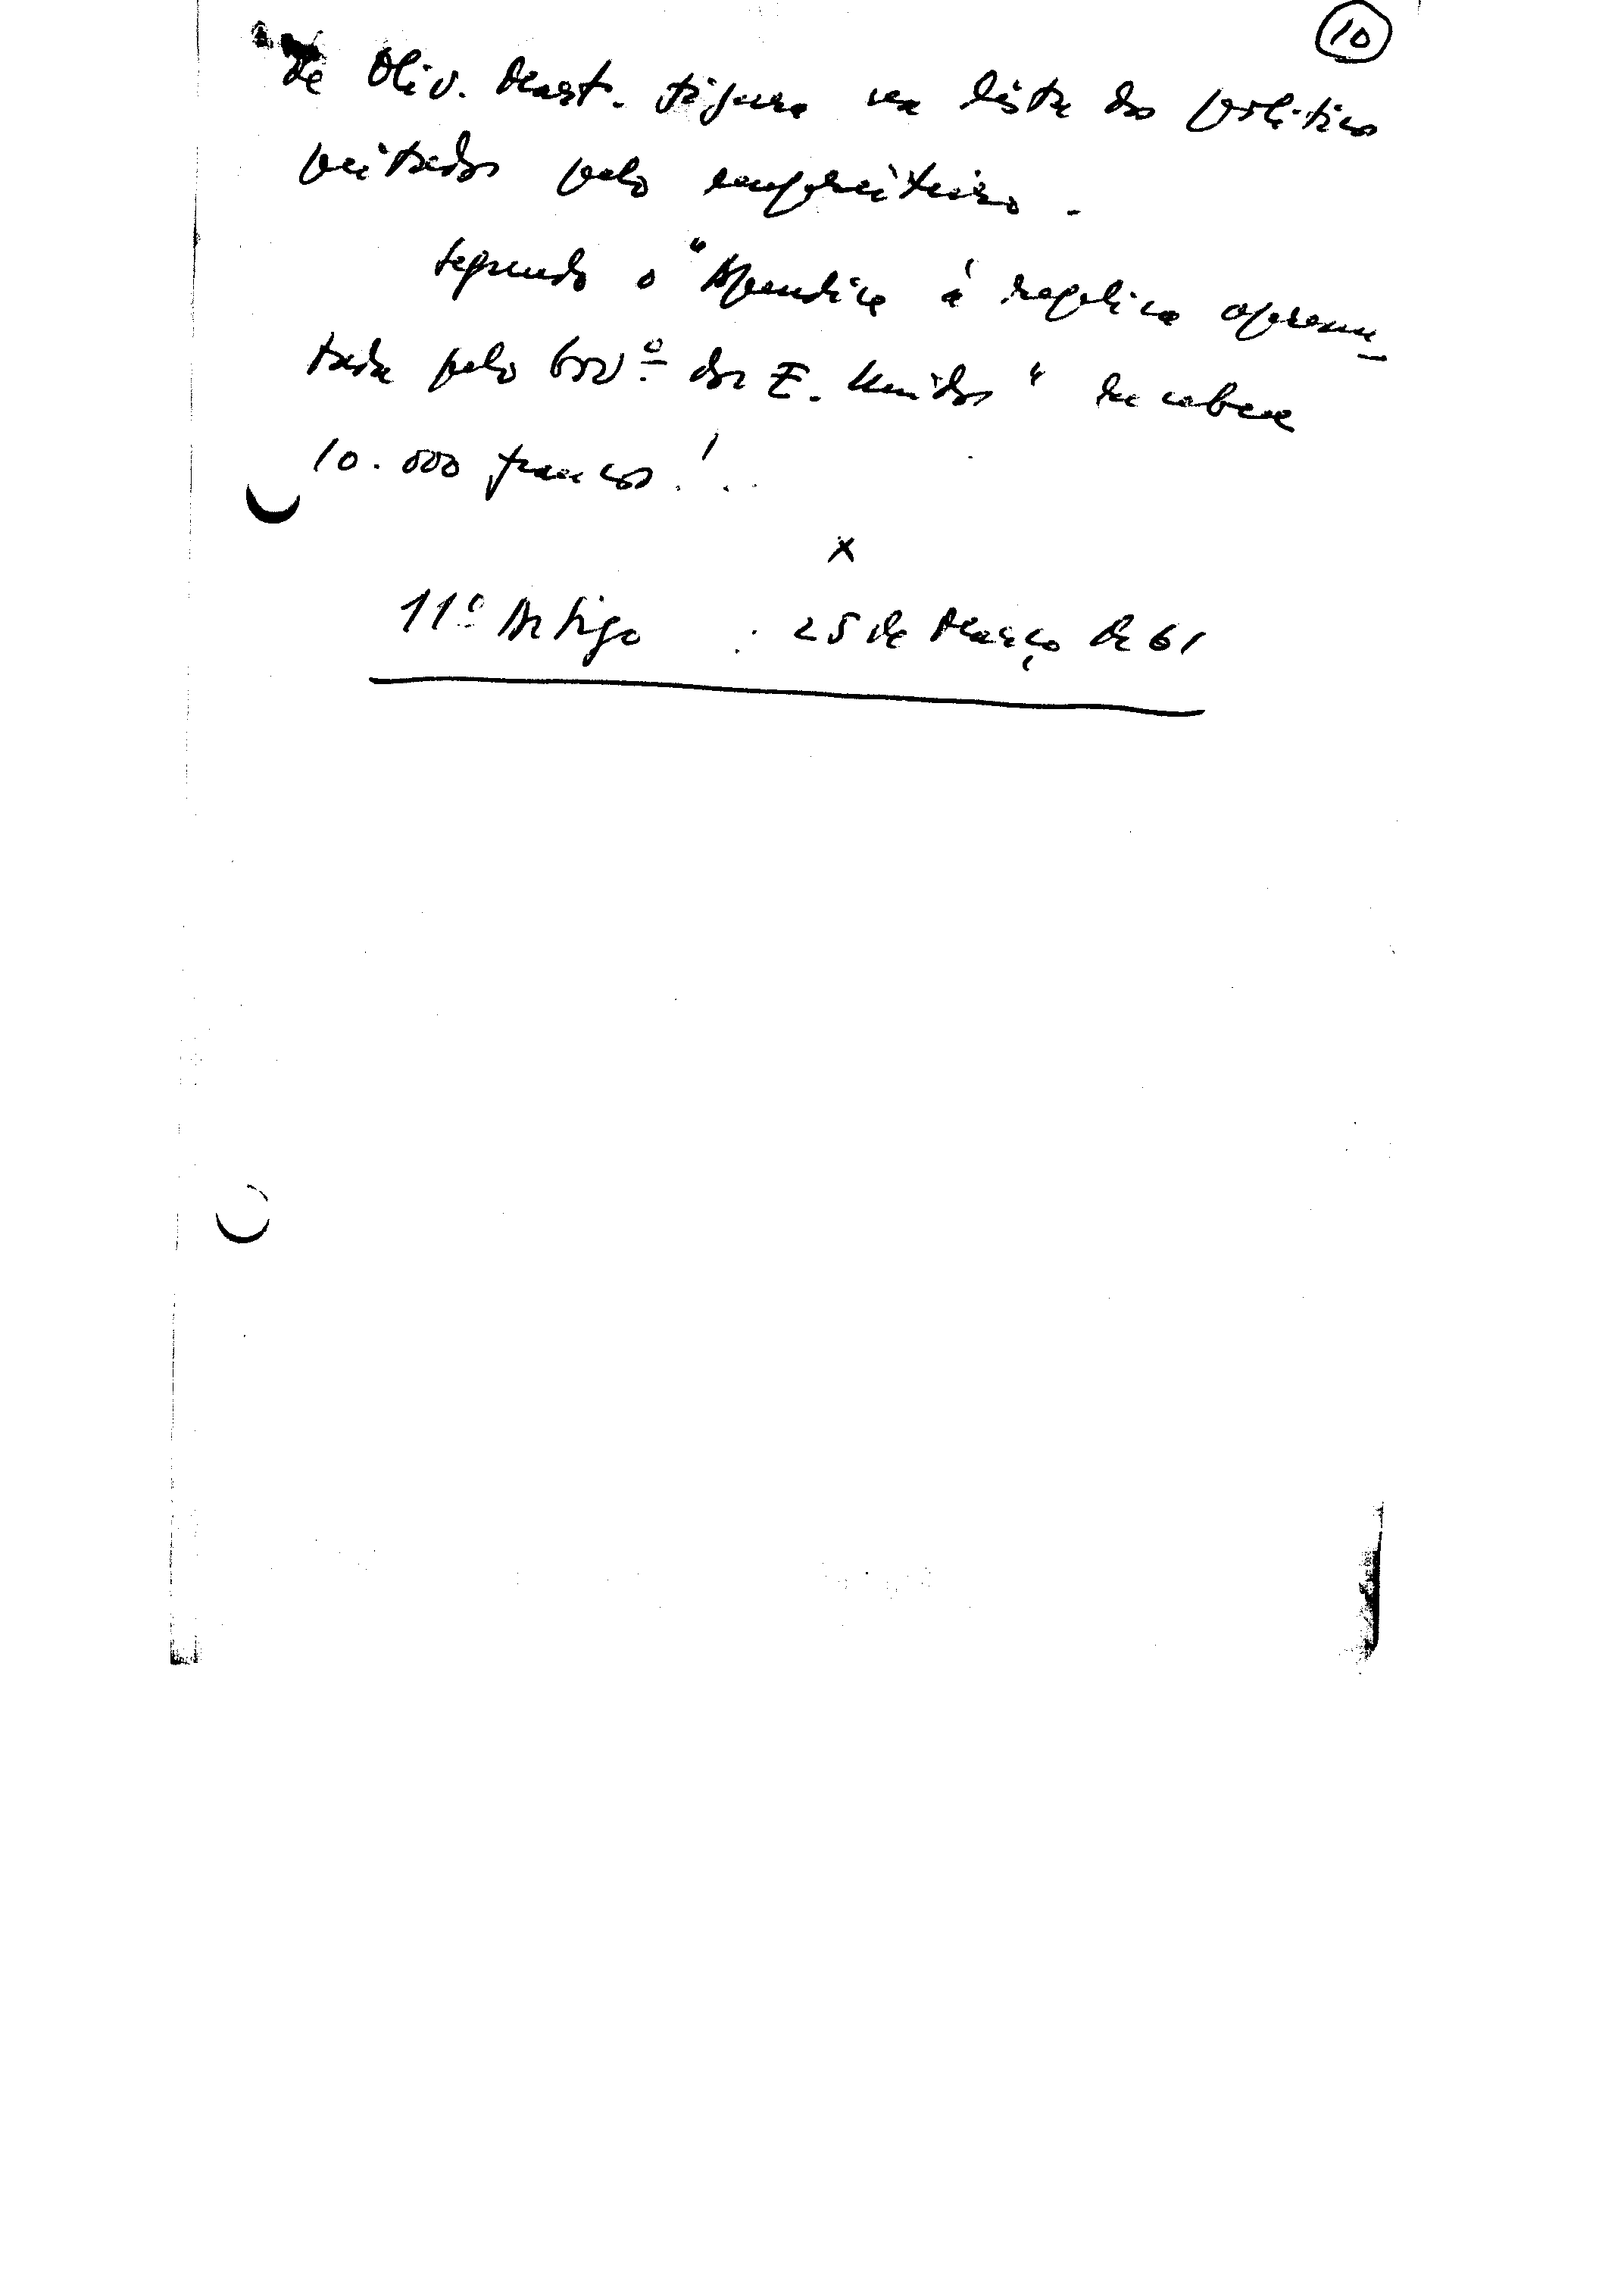 10
de Oliv. Mart. figura na lista dos politicos
peitados pelo empreiteiro.
Segundo o "Apendice á replica apresen_
tada pelo Govº dos E. Unidos" recebera
10.000 francos!..
x
11º Artigo . 25 de Março de 61